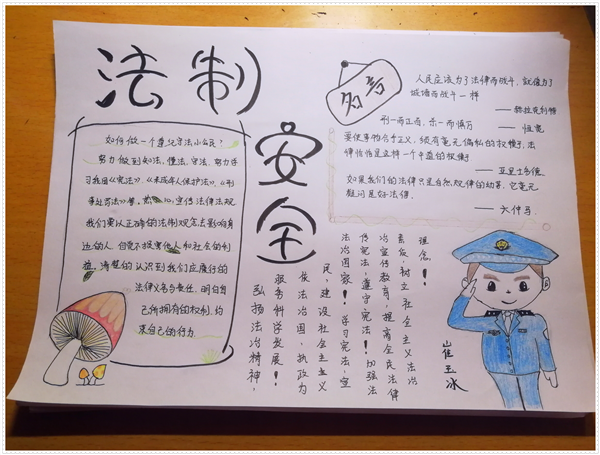 法制
安全
如何做一个遵纪守法小公民？
努力做到知法、懂法、守法、努力学
习我国《宪法》、《未成年人保护法》、《刑
事处罚法》等，热心，宣传法律法规
我们要从正确的法制观念去影响身
边的人，自觉不损害他人和社会的利
益，清楚的认识到我们应履行的
法律义务与责任，明白自
己所拥有的权利，约
束自己的行为
名言
人民应该为了法律而战斗，就像为了
城墙而战斗一样
—— 赫拉克利特
刑一而正百，杀一而慎万
—— 桓宽
要使事物合乎正义，须有毫无偏私的权衡，法
律恰恰是这样一个中道的权衡
—— 亚里士多德
如果我们的法律只是自然规律的幼芽，它毫无
疑问是好法律.
—— 大仲马
弘扬法治精神，
服务科学发展！
依法治国，执政为
民，建设社会主义
法治国家！学习宪法，宣
传宪法，遵守宪法！加强法
治宣传教育，提高全民法律
素质，树立社会主义法治
理念！
崔玉冰